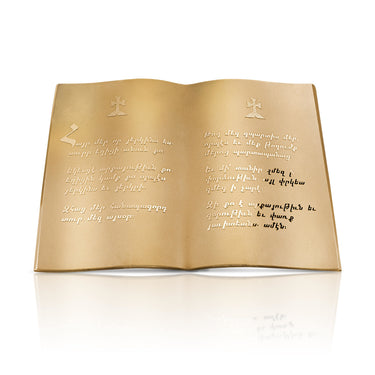 Հայր մեր որ յերկինս ես
սուրբ եղիցի անուն քո
Եկեսցէ արքայութիւն քո
եղիցին կամք քո որպէս
յերկինս եւ յերկրի
Զհաց մեր հանապազորդ
տուր մեզ այսօր
Թող մեզ զպարտիս մեր
որպէս եւ մեք թողումք
մերոց պարտապանաց
Եւ մի տանիր զմեզ ի
փորձութիւն այլ փրկեա
զմեզ ի չարէ
Զի քո է արքայութիւն եւ
զօրութիւն եւ փառք
յաւիտեանս. ամէն.